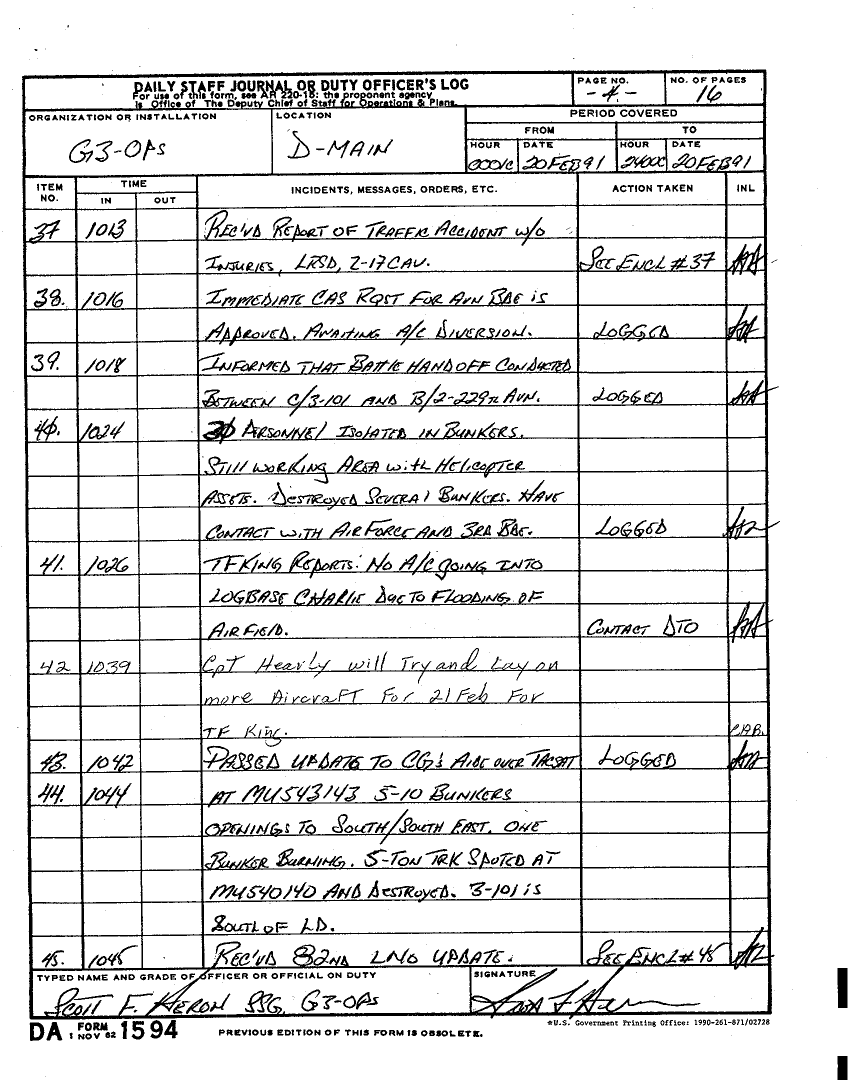 DAILY STAFF JOURNAL OR DUTY OFFICER'S LOG
For use of this form, see AR 220-15; the proponent agency
is Office of The Deputy Chief of Staff for Operations & Plans.
PAGE NO.
-4-
NO. OF PAGES
16
ORGANIZATION OR INSTALLATION
G3-OPS
LOCATION
D-MAIN
PERIOD COVERED
FROM
TO
HOUR DATE HOUR DATE
0001C 20FEB91 2400C 20FEB91
ITEM NO.
TIME
IN OUT
INCIDENTS, MESSAGES, ORDERS, ETC.
ACTION TAKEN
INL
37 1013 REC'VD REPORT OF TRAFFIC ACCIDENT W/O
INJURIES, LRSD, 2-17 CAV. SEE ENCL #37
38. 1016 IMMEDIATE CAS RQST FOR AVN BDE IS
APPROVED. AWAITING A/C DIVERSION. LOGGED
39. 1018 INFORMED THAT BATTLE HANDOFF CONDUCTED
BETWEEN C/3-101 AND B/2-229TH AVN. LOGGED
40. 1024 PERSONNEL ISOLATED IN BUNKERS.
STILL WORKING AREA WITH HELICOPTER
ASSETS. DESTROYED SEVERAL BUNKERS. HAVE
CONTACT WITH AIR FORCE AND 3RD BDE. LOGGED
41. 1026 TF KING REPORTS: NO A/C GOING INTO
LOGBASE CHARLIE DUE TO FLOODING OF
AIRFIELD. CONTACT DTO
42 1039 Cpt Hearly will Try and Lay on
more Aircraft For 21 Feb For
TF King. P.A.B.
43. 1042 PASSED UPDATE TO CG'S AIDE OVER TACSAT LOGGED
44. 1044 AT MU543143 5-10 BUNKERS
OPENINGS TO SOUTH/SOUTH EAST. ONE
BUNKER BURNING. 5-TON TRK SPOTED AT
MU540140 AND DESTROYED. 3-101 IS
SOUTH OF LD.
45. 1045 REC'VD 82ND LNO UPDATE. SEE ENCL #45
TYPED NAME AND GRADE OF OFFICER OR OFFICIAL ON DUTY
SCOTT F. HERON SSG, G3-OPS
SIGNATURE
DA FORM 1 NOV 62 1594
PREVIOUS EDITION OF THIS FORM IS OBSOLETE.
*U.S. Government Printing Office: 1990-261-871/02728